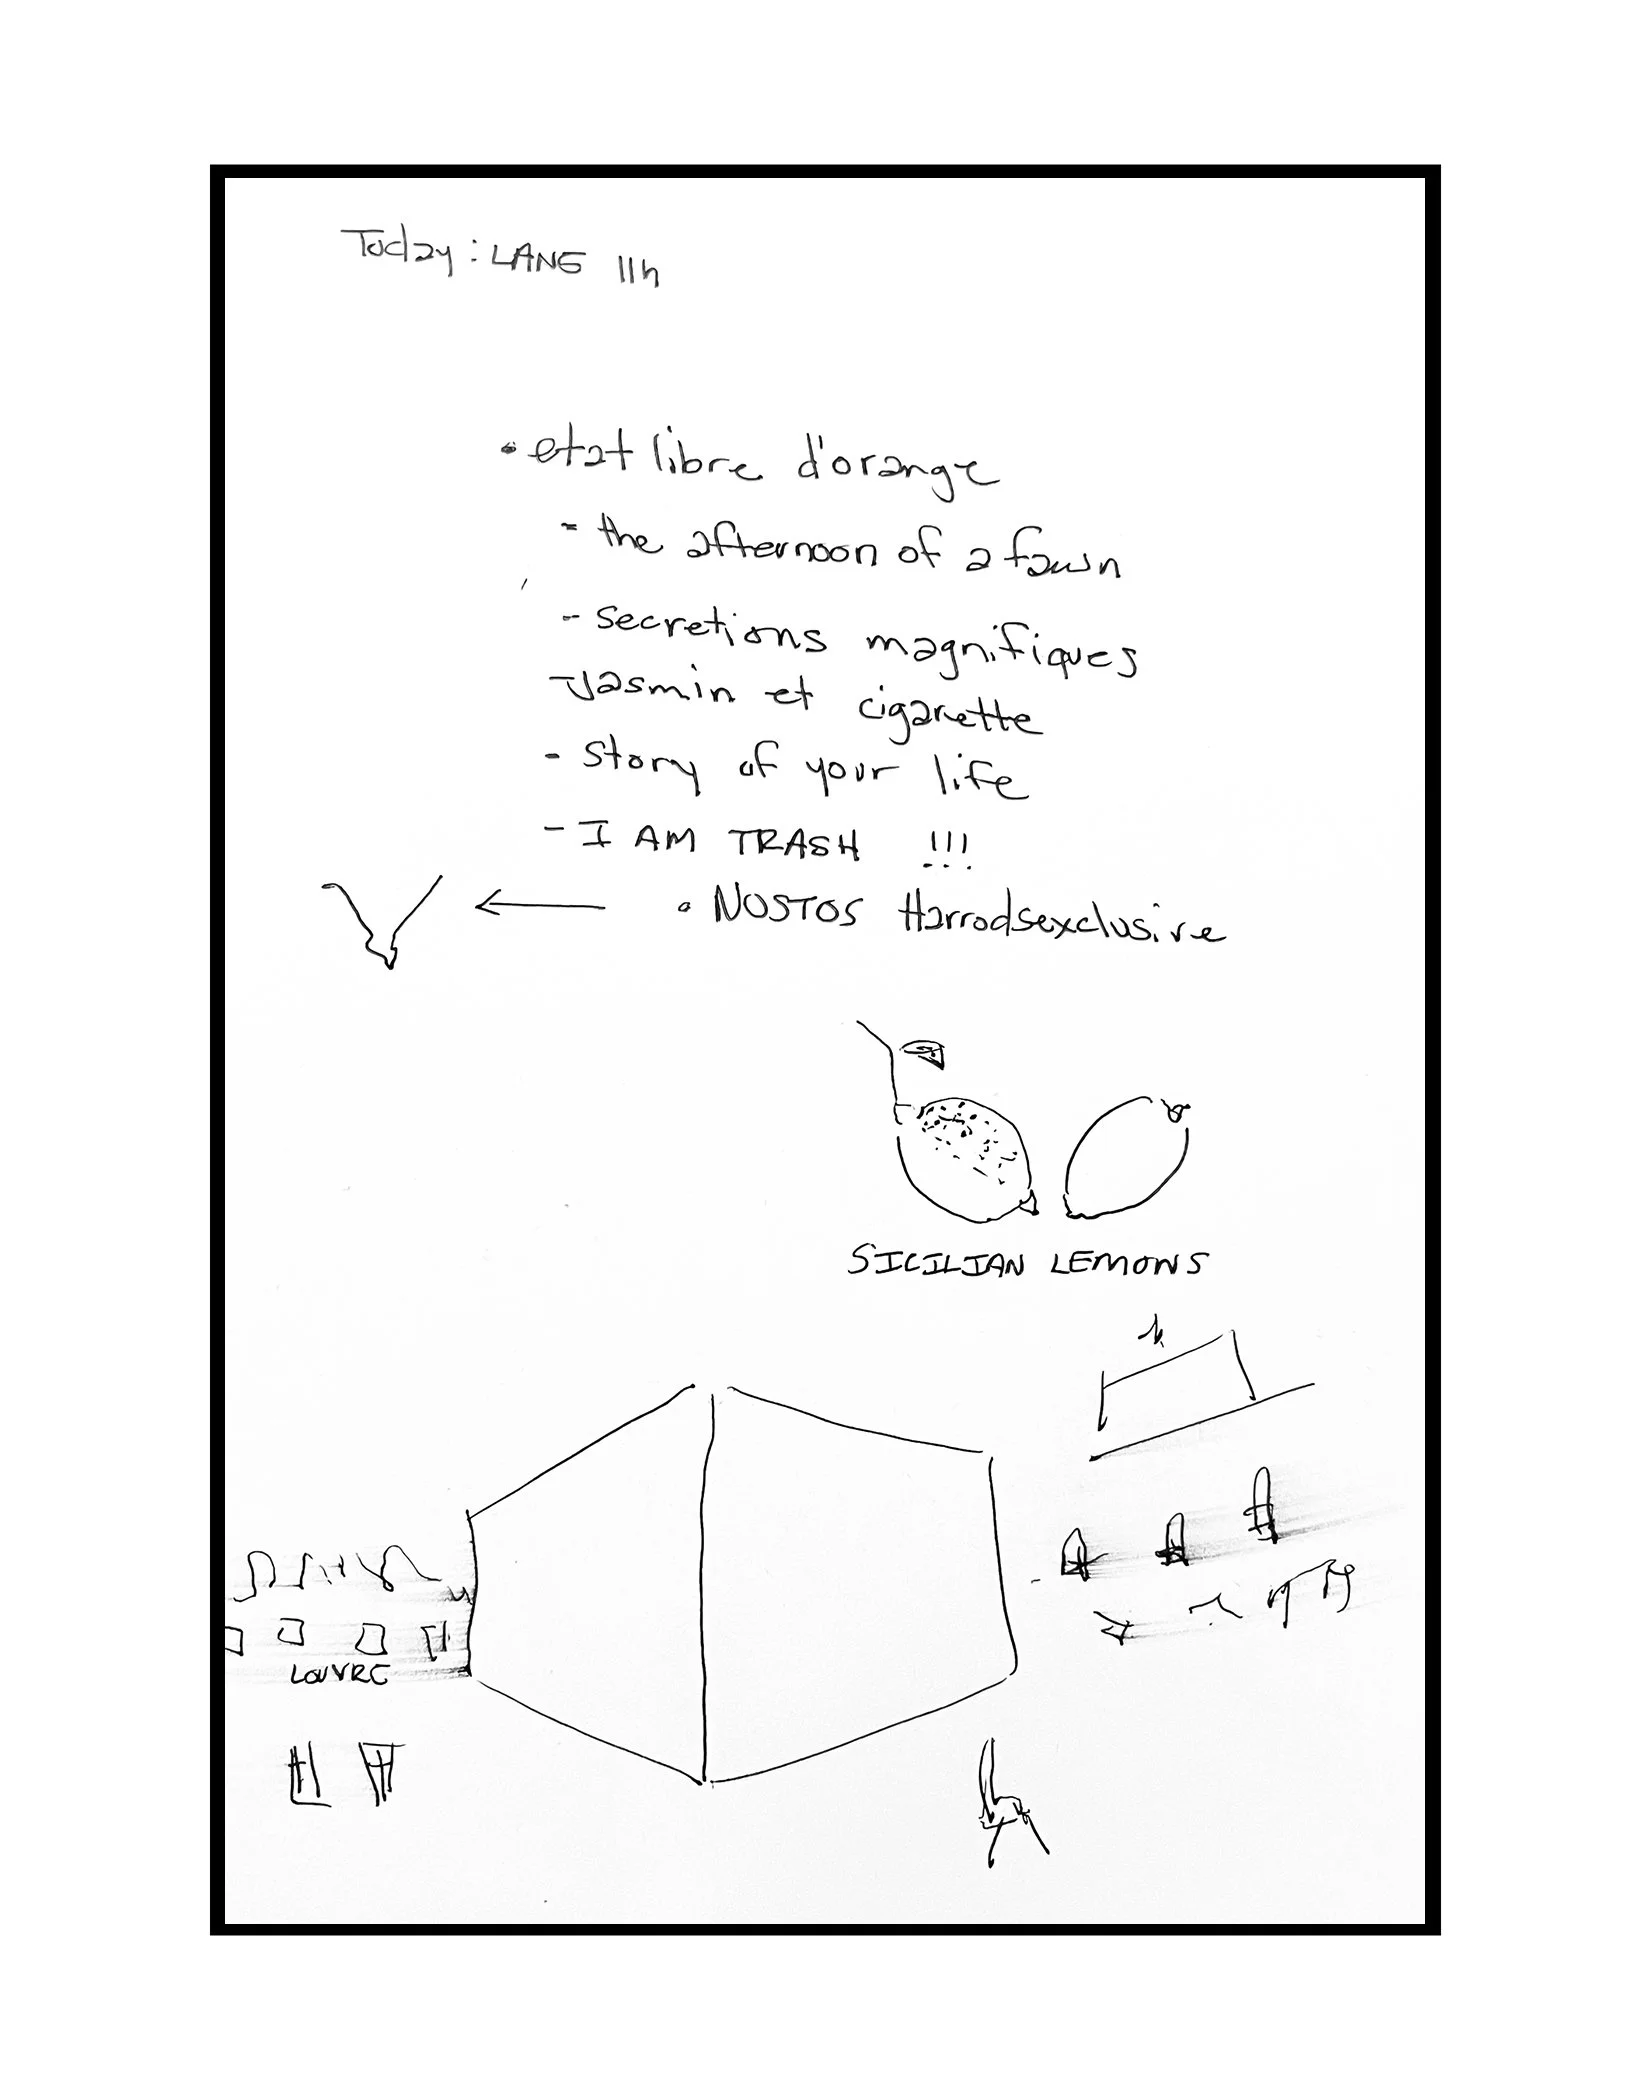 Today: LANE 11h
• etat libre d'orange
- the afternoon of a fawn
- secretions magnifiques
- Jasmin et cigarette
- Story of your life
- I AM TRASH !!!
• NOSTOS Harrodsexclusive
SICILIAN LEMONS
LOUVRE